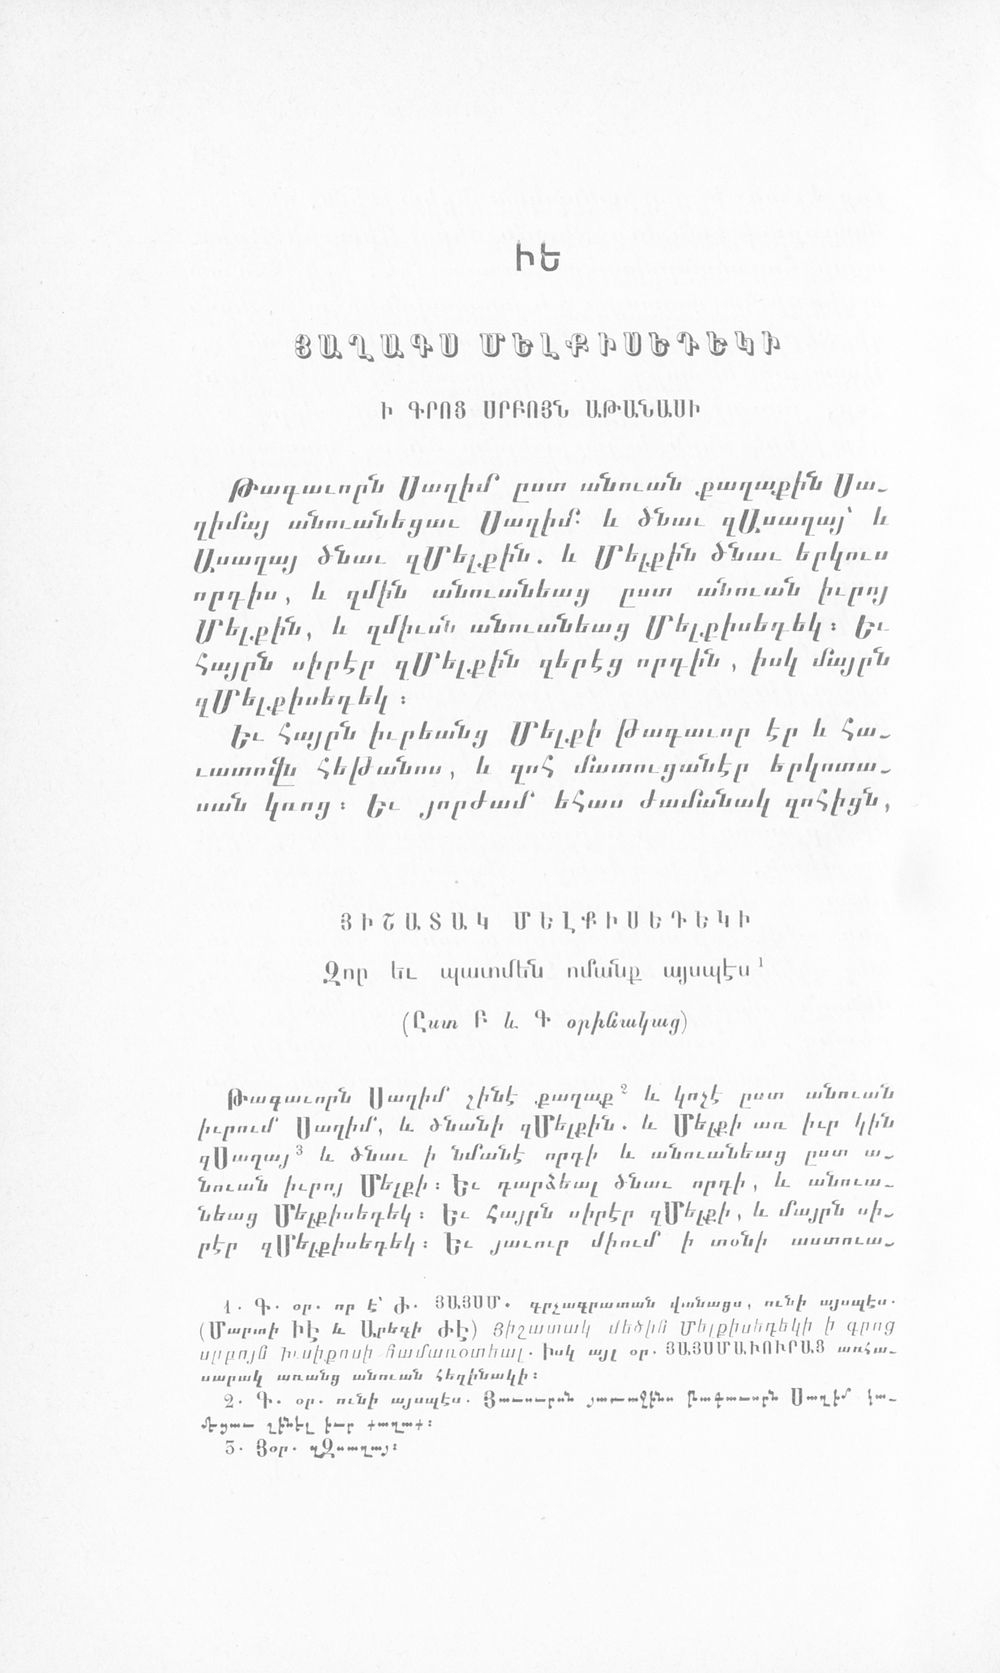 ԻԵ
ՅԱՂԱԳՍ ՄԵԼՔԻՍԵԴԵԿԻ
Ի ԳՐՈՑ ՍՐԲՈՅՆ ԱԹԱՆԱՍԻ
Թագաւորն Սաղիմ ըստ անուան քաղաքին Սա-
ղիմայ անուանեցաւ Սաղիմ։ և ծնաւ զԱսաղայ՝ և
Ասաղայ ծնաւ զՄելքին. և Մելքին ծնաւ երկուս
որդիս, և զմին անուանեաց ըստ անուան իւրոյ
Մելքին, և զմիւսն անուանեաց Մելքիսեդեկ։ Եւ
հայրն սիրէր զՄելքին զերէց որդին, իսկ մայրն
զՄելքիսեդեկ։
Եւ հայրն իւրեանց Մելքի թագաւոր էր և հա-
ւատովն հեթանոս, և զոհ մատուցանէր երկոտա-
սան կռոց։ Եւ յորժամ եհաս ժամանակ զոհիցն,
ՅԻՇԱՏԱԿ ՄԵԼՔԻՍԵԴԵԿԻ
Զոր եւ պատմեն ոմանք այսպէս 1
(Ըստ Բ և Գ օրինակաց)
Թագաւորն Սաղիմ շինէ քաղաք 2 և կոչէ ըստ անուան
իւրում Սաղիմ, և ծնանի զՄելքին. և Մելքի առ իւր կին
զՍաղայ 3 և ծնաւ ի նմանէ որդի և անուանեաց ըստ ա-
նուան իւրոյ Մելքի։ Եւ դարձեալ ծնաւ որդի, և անուա-
նեաց Մելքիսեդեկ։ Եւ հայրն սիրէր զՄելքի, և մայրն սի-
րէր զՄելքիսեդեկ։ Եւ յաւուր միում ի տօնի աստուա-
1. Գ. օր. որ է՝ Ժ. ՅԱՅՍՄ. գրչագրատան վտնացս, ունի այսպէս.
(Մարտի ԻԷ և Արեգի ԺԷ) Յիշատակ մեծին Մելքիսեդեկի ի գրոց
սրբոյն համառօտեալ. իսկ այլ օր. ՅԱՅՍՄԱՒՈՒՐԱՑ առհա-
սարակ առանց անուան հեղինակի։
2. Գ. օր. ունի այսպէս. Յաւուրսն յառաջինս թագաւորն Սաղիմ կա-
մեցաւ շինել իւր քաղաք։
3. Յօր. զԶսաղայ։